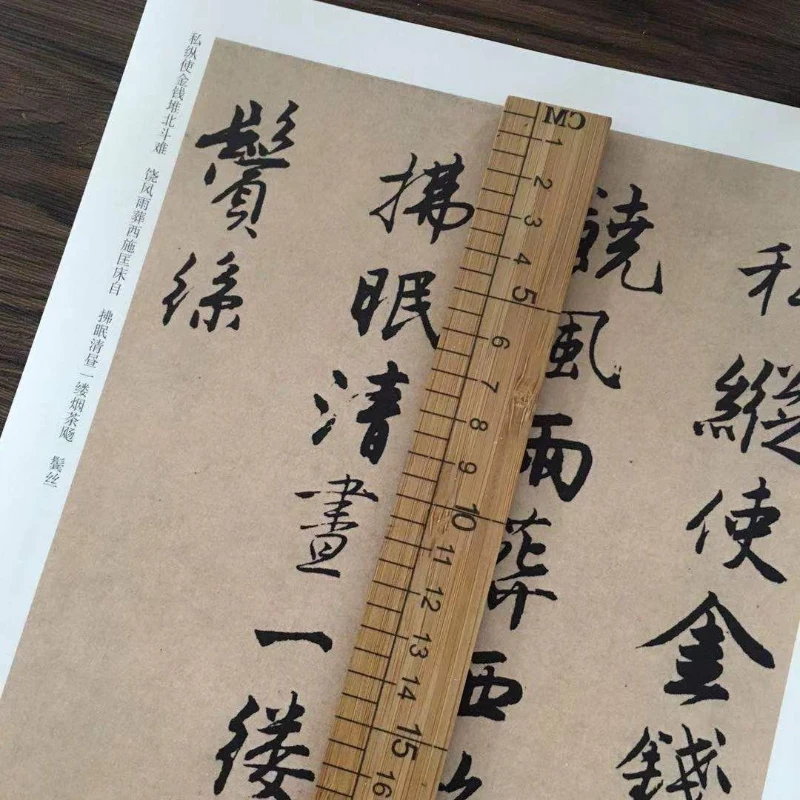 私縱使金錢
饒風雨葬西
拂眠清晝一缕
鬢絲
私纵使金钱堆北斗难 饶风雨葬西施匡床自 拂眠清昼一缕烟茶飏 鬓丝
CM
1
2
3
4
5
6
7
8
9
10
11
12
13
14
15
16